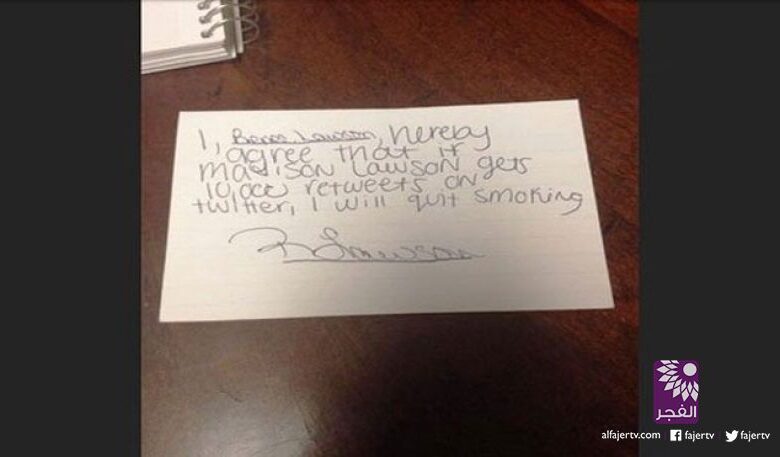 I, Lawson, hereby
agree that if
madison Lawson gets
10,000 retweets on
twitter, I will quit smoking
Lawson
الفجر
alfajertv.com fajertv fajertv